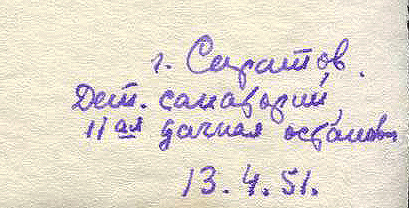 г. Саратов.
Дет. санаторий,
11ая дачная останов
13.4.51.